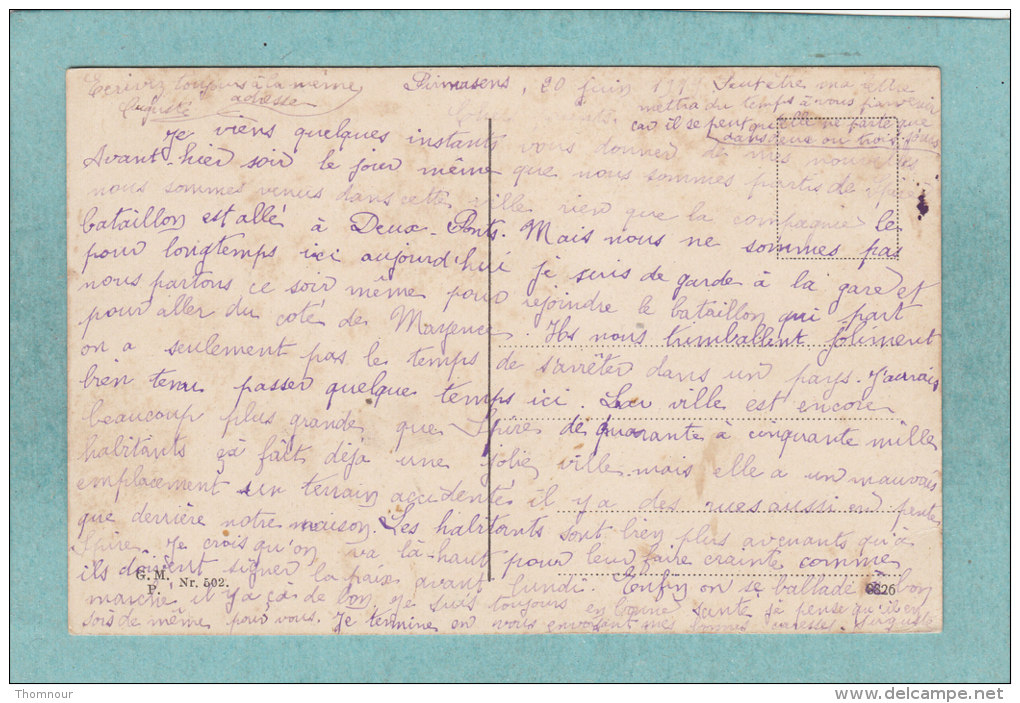 Ecrivez toujours à la même
adresse
Auguste
Pirmasens, 20 Juin 1919
Peut être ma lettre
mettra du temps à vous parvenir
car il se peut qu'elle ne parte que
dans deux ou trois jours
Chers parents.
Je viens quelques instants vous donner de mes nouvelles
Avant-hier soir le jour même que nous sommes partis de Spire
nous sommes venus dans cette ville rien que la compagnie le
bataillon est allé à Deux-Ponts. Mais nous ne sommes pas
pour longtemps ici aujourd'hui je suis de garde à la gare et
nous partons ce soir même pour rejoindre le bataillon qui part
pour aller du coté de Mayence. Ils nous trimballent joliment
on a seulement pas le temps de s'arrêter dans un pays. J'aurais
bien tenu passer quelque temps ici. La ville est encore
beaucoup plus grande que Spire de quarante à cinquante mille
habitants ça fait déja une jolie ville mais elle a un mauvais
emplacement un terrain accidenté il y a des rues aussi en pente
que derrière notre maison. Les habitants sont bien plus avenants qu'à
Spire. Je crois qu'on va là-haut pour leur faire crainte comme
ils doivent signer la paix avant lundi. Enfin on se ballade à bon
marché il y a ça de bon. Je suis toujours en bonne santé je pense qu'il en
sois de même pour vous. Je termine en vous envoyant mes bonnes caresses. Auguste
G. M.
P. , Nr. 502.
6826
Thomnour
http://www.delcampe.net